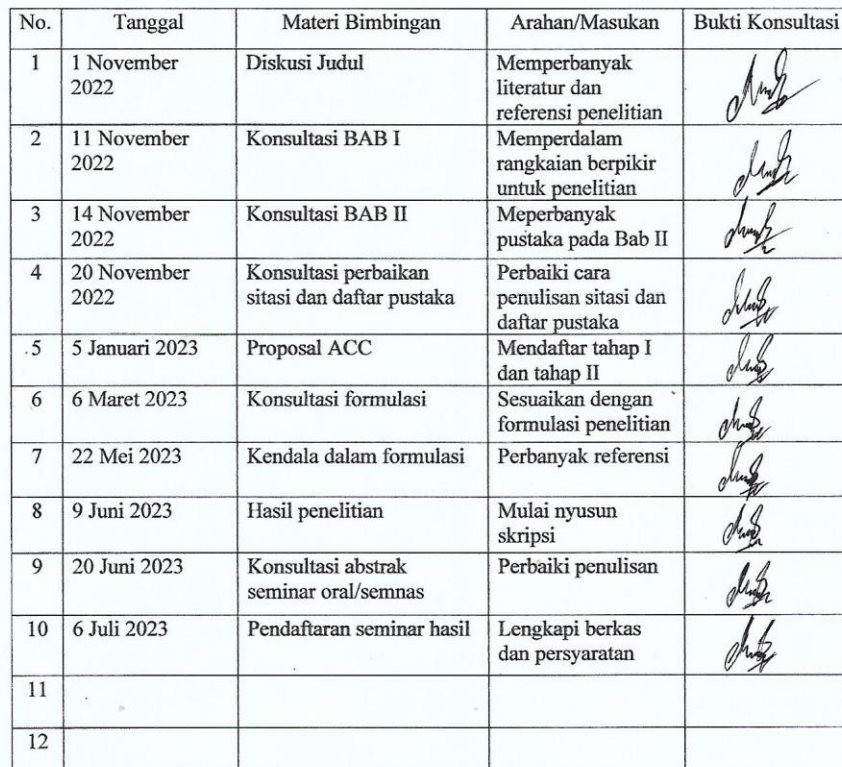 No. Tanggal Materi Bimbingan Arahan/Masukan Bukti Konsultasi
1 1 November Diskusi Judul Memperbanyak
2022 literatur dan
referensi penelitian
2 11 November Konsultasi BAB I Memperdalam
2022 rangkaian berpikir
untuk penelitian
3 14 November Konsultasi BAB II Meperbanyak
2022 pustaka pada Bab II
4 20 November Konsultasi perbaikan Perbaiki cara
2022 sitasi dan daftar pustaka penulisan sitasi dan
daftar pustaka
5 5 Januari 2023 Proposal ACC Mendaftar tahap I
dan tahap II
6 6 Maret 2023 Konsultasi formulasi Sesuaikan dengan
formulasi penelitian
7 22 Mei 2023 Kendala dalam formulasi Perbanyak referensi
8 9 Juni 2023 Hasil penelitian Mulai nyusun
skripsi
9 20 Juni 2023 Konsultasi abstrak Perbaiki penulisan
seminar oral/semnas
10 6 Juli 2023 Pendaftaran seminar hasil Lengkapi berkas
dan persyaratan
11
12